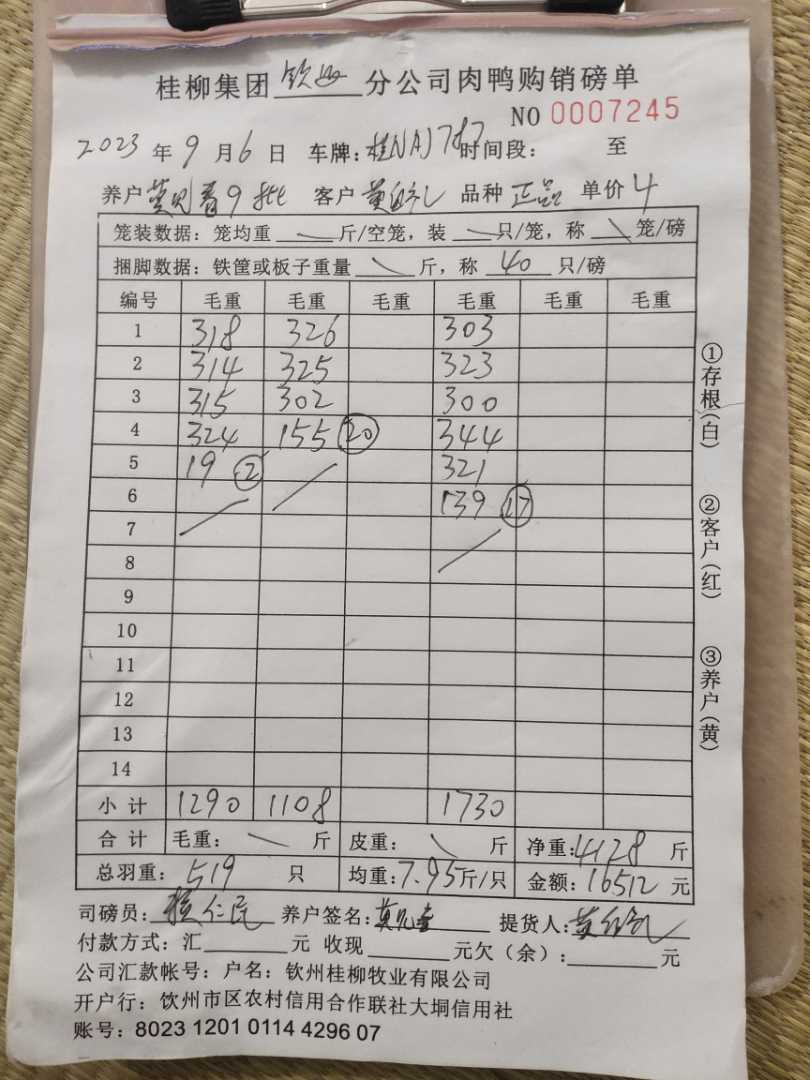 桂柳集团 钦州 分公司肉鸭购销磅单
NO 0007245
2023 年 9 月 6 日 车牌: 桂NAJ787 时间段: 至
养户 9批 客户 黄 品种 正品 单价 4
笼装数据: 笼均重 斤/空笼, 装 只/笼, 称 笼/磅
捆脚数据: 铁筐或板子重量 斤, 称 40 只/磅
编号 毛重 毛重 毛重 毛重 毛重 毛重
1 318 326 303
2 314 325 323
3 315 302 300
4 324 155 ⑳ 344
5 19 ② 321
6 139 ⑰
7
8
9
10
11
12
13
14
小计 1290 1108 1730
合计 毛重: 斤 皮重: 斤 净重: 4128 斤
总羽重: 519 只 均重: 7.95 斤/只 金额: 16512 元
司磅员: 仁民 养户签名: 莫 提货人: 黄
付款方式: 汇 元 收现 元欠(余): 元
公司汇款帐号: 户名: 钦州桂柳牧业有限公司
开户行: 饮州市区农村信用合作联社大垌信用社
账号: 8023 1201 0114 4296 07
①存根(白)
②客户(红)
③养户(黄)